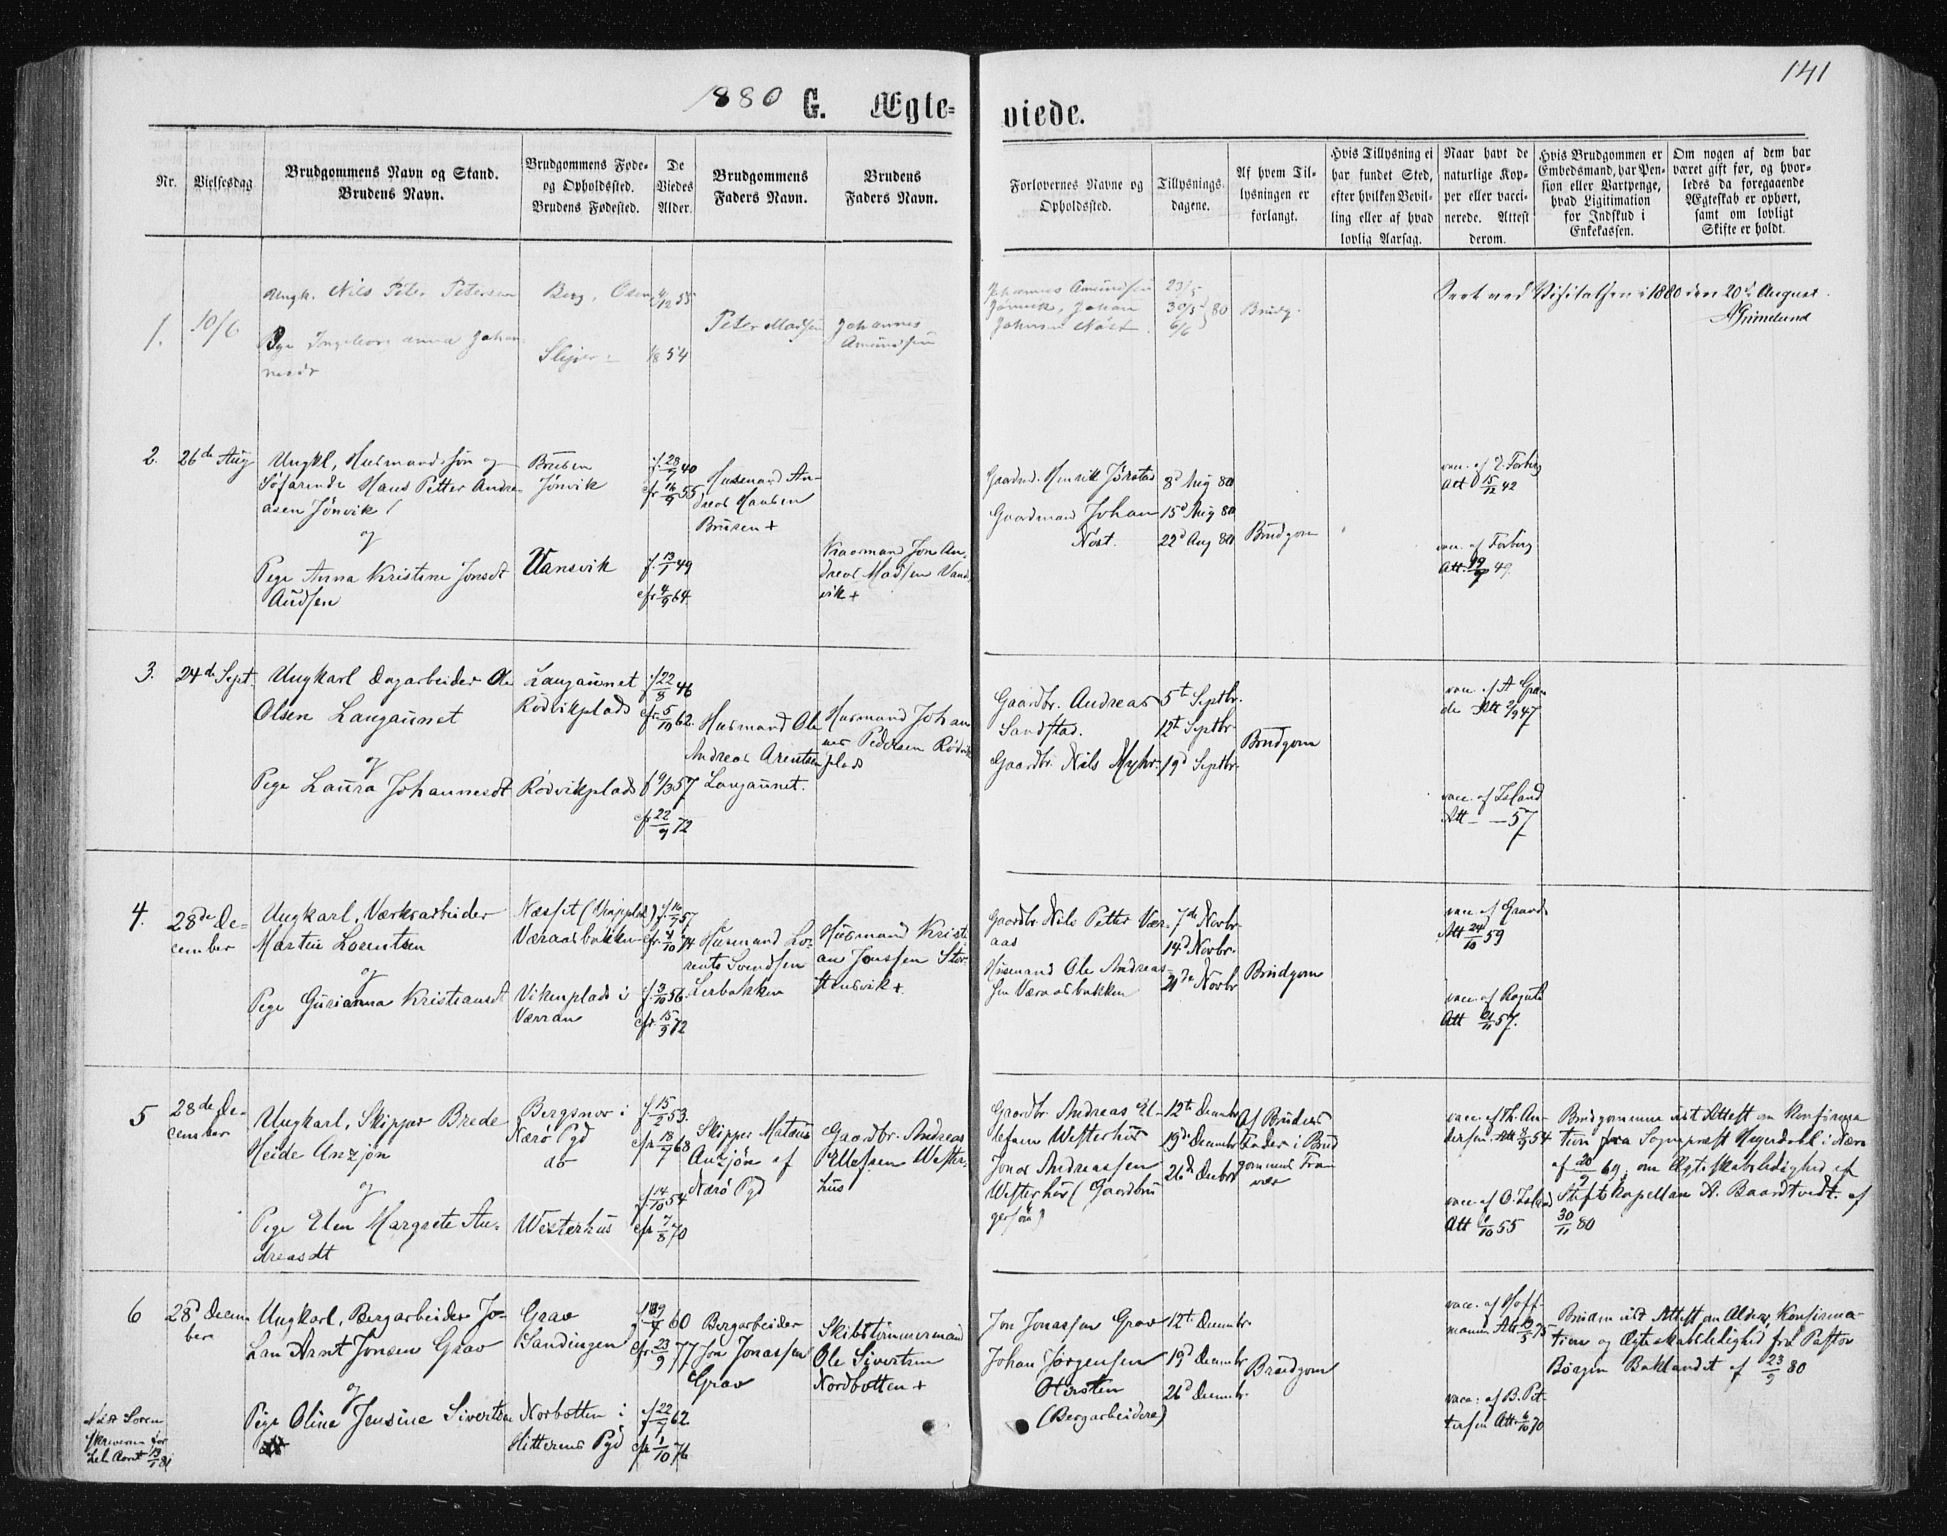 141
1880 G. Ægte-
viede.
Nr.
Vielsesdag
Brudgommens Navn og Stand.
Brudens Navn.
Brudgommens Føde-
og Opholdssted.
Brudens Fødested.
De
Viedes
Alder.
Brudgommens
Faders Navn.
Brudens
Faders Navn.
Forlovernes Navne og
Opholdssted.
Tillysnings-
dagene.
Af hvem Til-
lysningen er
forlangt.
Hvis Tillysning ei
har fundet Sted,
efter hvilken Bevil-
ling eller af hvad
lovlig Aarsag.
Naar havt de
naturlige Kop-
per eller vacci-
nerede. Attest
derom.
Hvis Brudgommen er
Embedsmand, har Pen-
sion eller Vartpenge,
hvad Ligitimation
for Indskud i
Enkekassen.
Om nogen af dem har
været gift før, og hvor-
ledes da foregaaende
Ægteskab er ophørt,
samt om lovligt
Skifte er holdt.
1.
10/6
Ungk. Nils Peter Petersen
Berg, Osen
4/12 55
Pige Ingeborg Anna Johan
nesdt
1/8 54
Peter Madsen
Johannes
Amundsen
Johannes Amundsen
Jønvik, Johan
Johnsen Nøst
23/5
30/5 80
6/6
Brudg.
Seet ved Visitatsen i 1880 den 20de August.
AGrimelund
2.
26de Aug
Ungkl, Husmandssøn og
Søfarende Hans Petter Andre-
asen Jønvik
og
Pige Anna Kristine Jonsdt
Brusen
Jønvik
Vansvik
f. 13/7 49
cfr 4/9 64
Husmand An-
dreas Hansen
Brusen +
Husmand Jon An-
dreas Madsen Vans
vik +
Gaardmd. Henrik Jørstad
Gaardmand Johan
Nøst.
8de Aug 80
15de Aug 80
22de Aug 80
Brudgom
vac. af Forberg
3.
24de Sept.
Ungkarl Dagarbeider Ole
Olsen Langaunet
og
Pige Laura Johannesdt
Langaunet
Rødvikplads
Rødvikplads
f 22/8 46
cfr 5/10 62.
cfr 22/9 72
Husmand Ole
Andreas Arentsen
Langaunet.
Husmand Johan
nes Pedersen Rødvik
plads
Gaardbr. Andreas
Sandstad.
Gaardbr. Nils Myhr.
5te Septbr.
12te Septbr.
19de Septbr.
Brudgom
vac. af A Gran
de Att 2/9 47
vacc. af Island
Att - - 57
4.
28de De-
cember
Ungkarl, Værksarbeider
Martin Lorentsen
og
Pige Gurianna Kristiansdt
Væraasbakken
Vikenplads i
Værran
f. 3/10 56
cfr. 15/9 72
Husmand Lo-
rents Svendsen
Lerbakken
Husmand Kristi
an Jonssen Stor-
stensvik +.
Gaardbr. Nils Petter Vær-
aas
Husmand Ole Andreas-
sen Væraasbakken
7de Novbr.
14de Novbr.
21de Novbr
Brudgom
vac. af Grande
Att 24/10 59
5
28de De-
cember
Ungkarl, Skipper Brede
Heide Anzjøn
og
Pige Elen Margrete An-
dreasdt
Bergsnov i
Nærø Pgd
do
Westerhus
f. 15/2 53.
cfr 18/7 68
f. 14/10 54
cfr 7/8 70
Skipper Matæus
Anzjøn af
Nærø Pgd
Gaardbr. Andreas
Ellefsen Wester-
hus
Gaardbr Andreas El-
lefsen Westerhus
Jonas Andreassen
Westerhus (Gaardbru
gersøn)
12te Decembr
19de Decembr
26de Decbr
Af Brudens
Fader i Brud
gommens Fra-
vær
vacc. af Th. An-
dersen
vacc. af O. Island
Att 1/10 55
Brudgommen vist Attest om Konfirma
tion fra Sognepræst Hegerdahl i Nærø
af 20/9 69; om Ægteskabsledighed af
Stiftskapellan A. Baardtvedt. af
30/11 80
6
28de Decem-
ber
Ungkarl, Bergarbeider Jo-
han Arnt Jonsen Grav
og
Pige Oline Jensine Sivertsen
Grav
Sandingen
Norbotten i
Hitterens Pgd
cfr 23/9 77
f 22/7 62
cfr 1/10 76
Bergarbeider
Jon Jonassen
Grav
Skibstømmermand
Ole Sivertsen
Nordbotten +
Jon Jonassen Grav
Johan Jørgensen
Østen
(Bergarbeidere)
12te Decembr
19de Decembr
26de Decembr.
Brudgom
vacc. af Hoff-
mann
vacc. af B. Pet-
tersen Att. 6/10 70
Bruden vist Attest om Alder, Konfirma-
tion og Ægteskabsledighed fra Pastor
Børgen Baklandet af 23/9 80